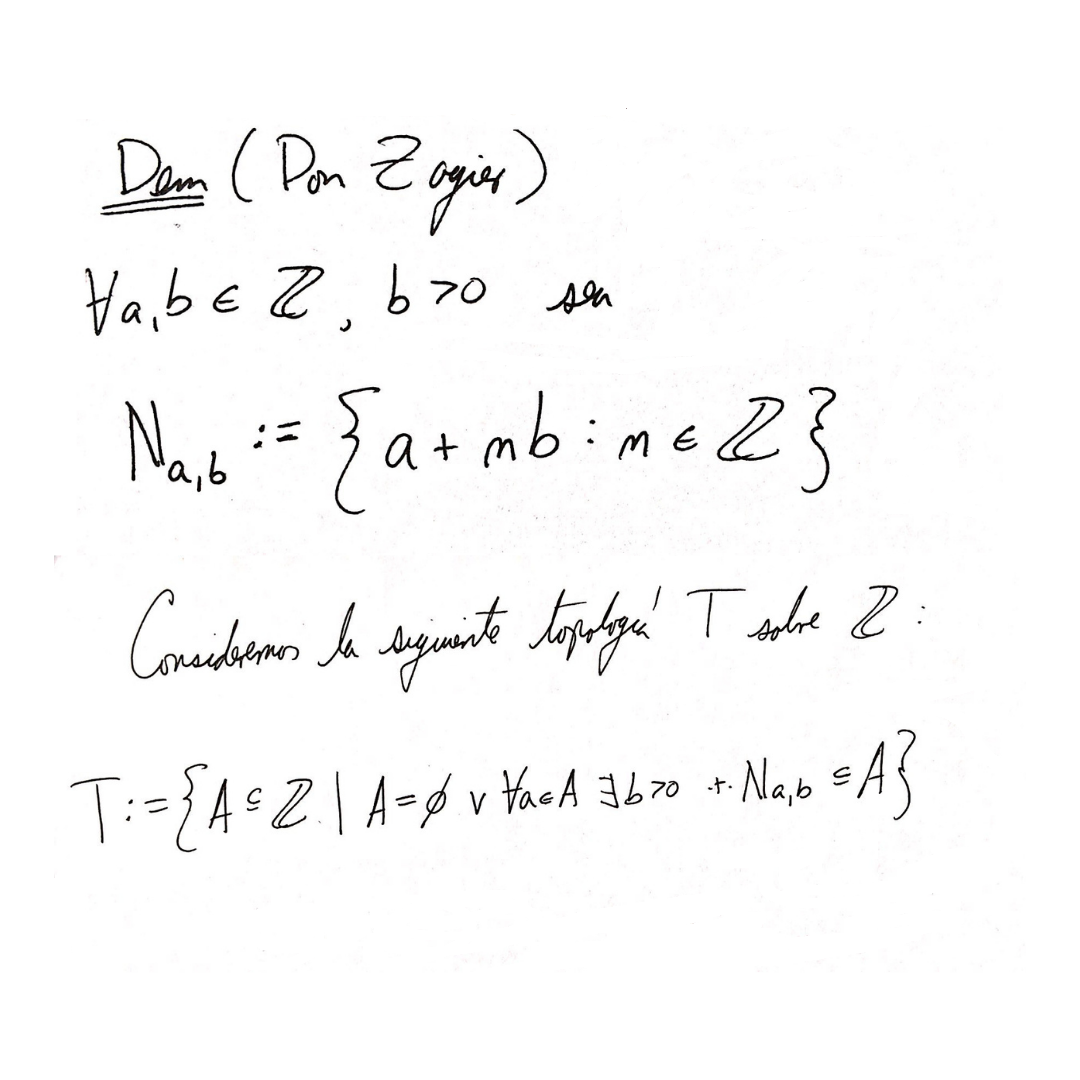 Dem (Don Zagier)
∀a,b ∈ ℤ, b>0 sea
N_{a,b} := {a + nb : n ∈ ℤ}
Consideremos la siguiente topología T sobre ℤ:
T := {A ⊆ ℤ | A = ∅ ∨ ∀a∈A ∃b>0 t. N_{a,b} ⊆ A}